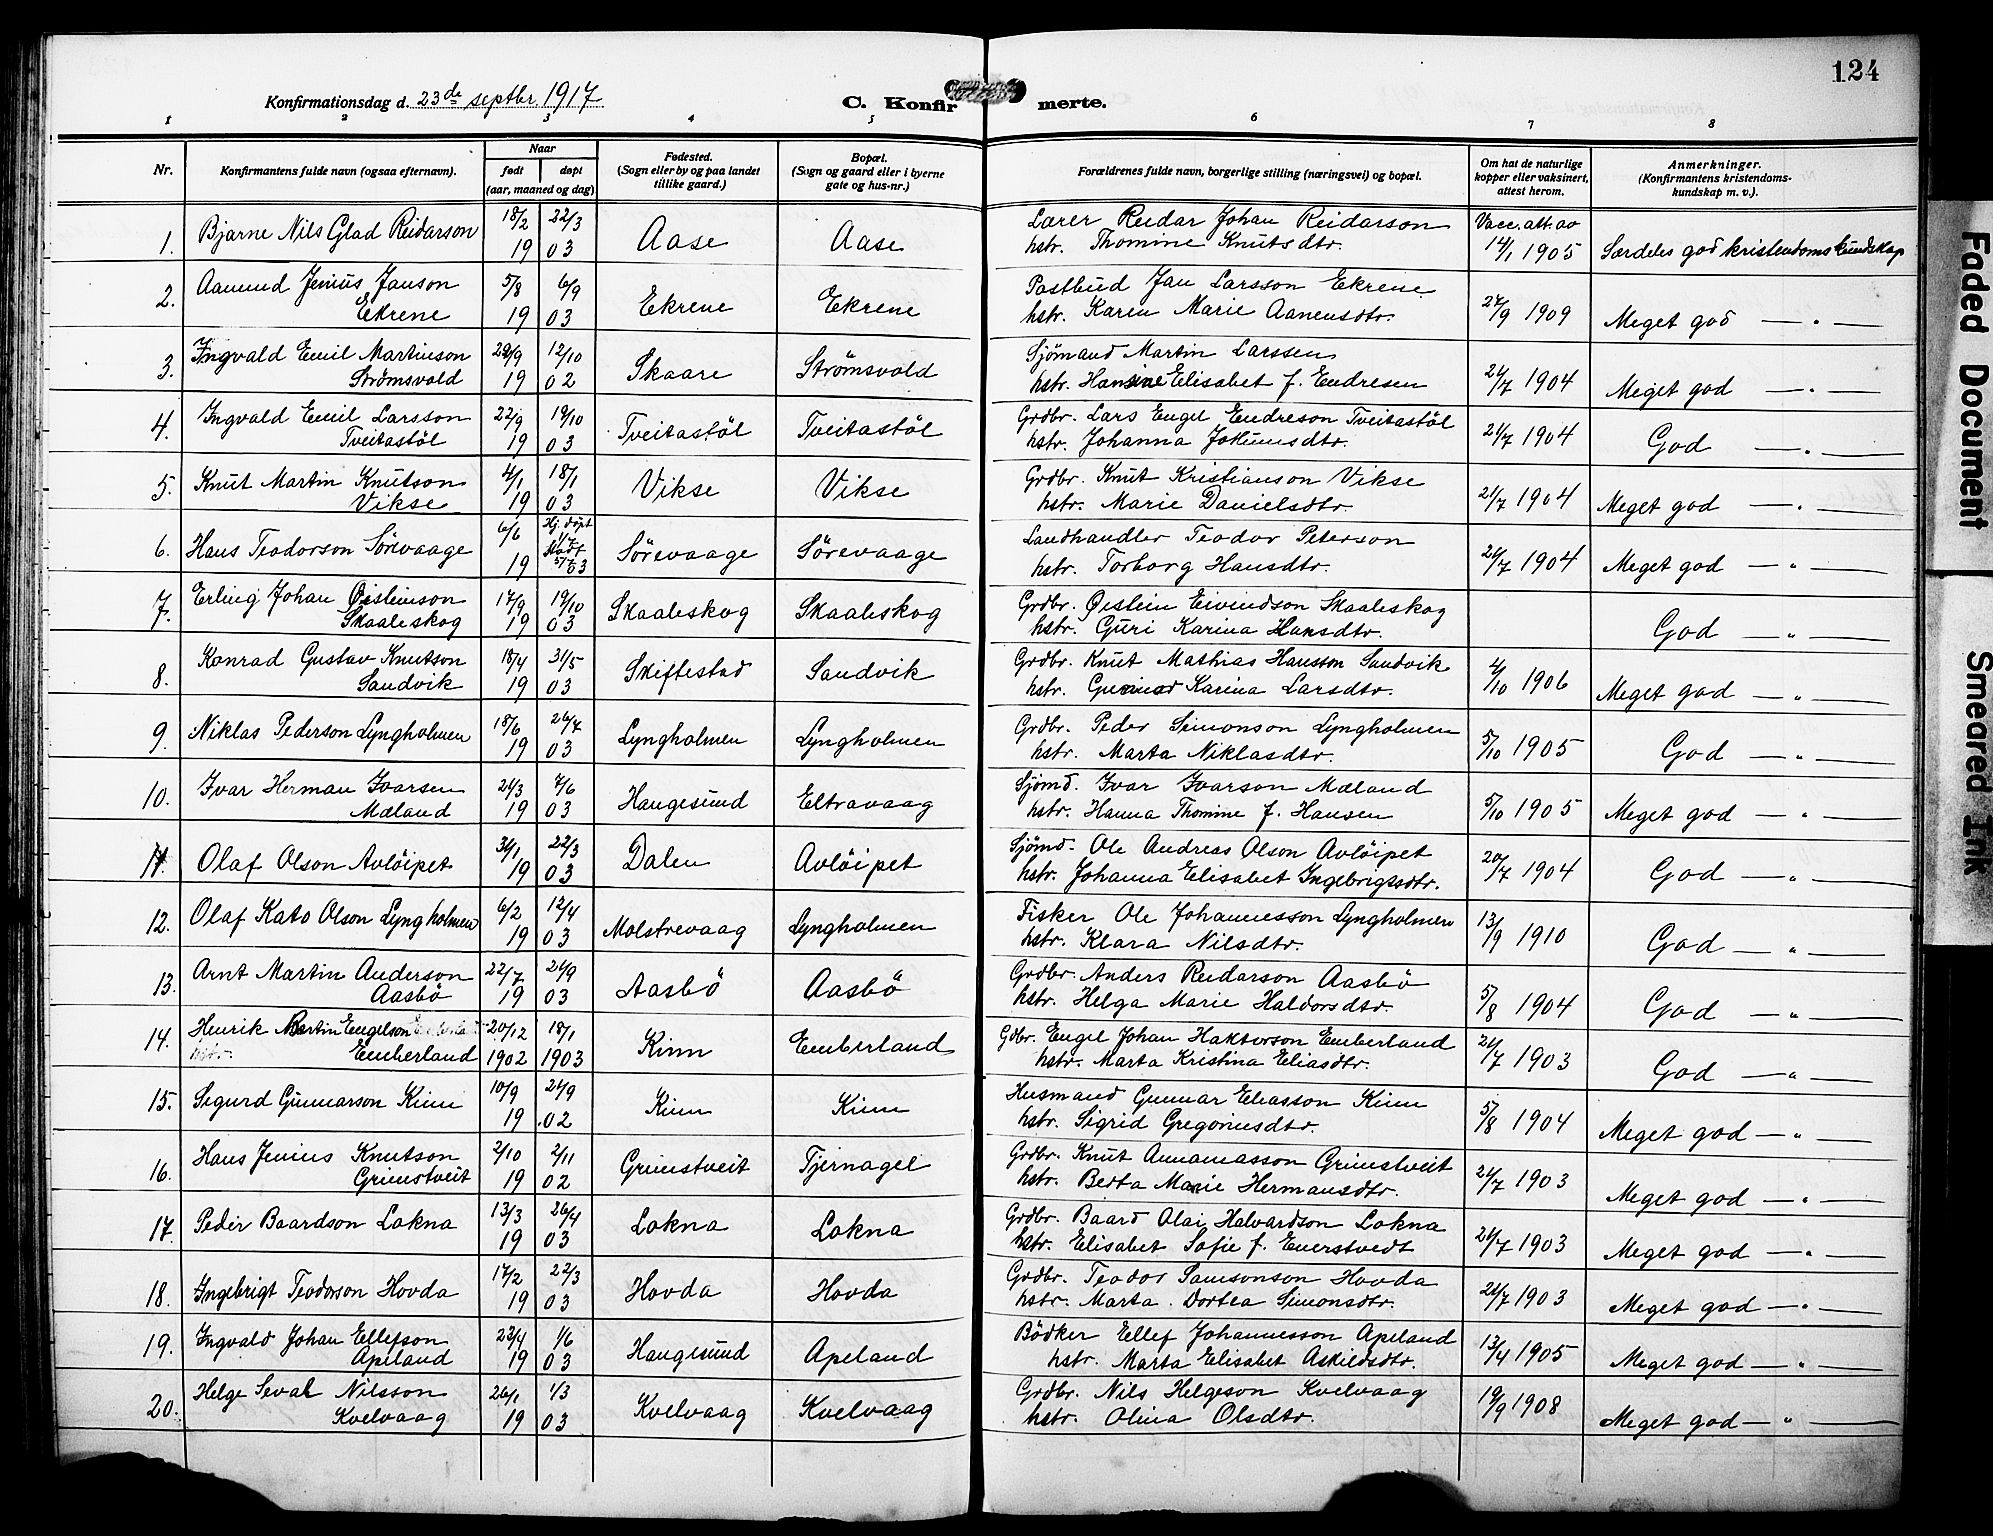 124
Konfirmationsdag d. 23de septbr. 1917
C. Konfirmerte.
1 2 3 4 5 6 7 8
Nr. Konfirmantens fulde navn (ogsaa efternavn). Naar født døpt (aar, maaned og dag) Fødested. (Sogn eller by og paa landet tillike gaard.) Bopæl. (Sogn og gaard eller i byerne gate og hus-nr.) Forældrenes fulde navn, borgerlige stilling (næringsvei) og bopæl. Om hat de naturlige kopper eller vaksinert, attest herom. Anmerkninger. (Konfirmantens kristendoms-kundskap m. v.).
1. Bjarne Nils Glad Reidarson 18/2 22/3 1903 Aase Aase Lærer Reidar Johan Reidarson hstr. Thomine Knutsdtr. Vacc. att. av 14/1 1905 Særdeles god kristendomskundskap
2. Aamund Jenius Janson Ekrene 5/8 6/9 1903 Ekrene Ekrene Postbud Jan Larsson Ekrene hstr. Karen Marie Aanensdtr. 27/9 1909 Meget god — „ —
3. Ingvald Emil Martinson Strømsvold 29/9 12/10 1902 Skaare Strømsvold Sjömand Martin Larssen hstr. Hansine Elisabet f. Endresen 21/7 1904 Meget god — „ —
4. Ingvald Emil Larsson Tveitastøl 22/9 19/10 1903 Tveitastøl Tveitastøl Grdbr. Lars Engel Endreson Tveitastøl hstr. Johanna Jokumsdtr. 21/7 1904 God — „ —
5. Knut Martin Knutson Vikse 4/1 18/1 1903 Vikse Vikse Grdbr. Knut Kristianson Vikse hstr. Marie Danielsdtr. 21/7 1904 Meget god — „ —
6. Hans Teodorson Sørevaage 6/6 Hj. døpt 1903 Sørevaage Sørevaage Landhandler Teodor Peterson hstr. Torborg Hansdtr. 21/7 1904 Meget god — „ —
7. Erling Johan Øisteinson Skaaleskog 17/9 19/10 1903 Skaaleskog Skaaleskog Grdbr. Øistein Eivindson Skaaleskog hstr. Guri Karina Hansdtr. God — „ —
8. Konrad Gustav Knutson Sandvik 18/4 31/5 1903 Skiftestad Sandvik Grdbr. Knut Mathias Hansson Sandvik hstr. Karina Larsdtr. 4/10 1906 Meget god — „
9. Niklas Pederson Lyngholmen 18/6 26/7 1903 Lyngholmen Lyngholmen Grdbr. Peder Simonson Lyngholmen hstr. Marta Niklasdtr. 5/10 1905 God — „ —
10. Ivar Herman Ivarsen Mæland 21/3 7/6 1903 Haugesund Eltravaag Sjömd. Ivar Ivarson Mæland hstr. Hanna Thomine f. Hansen 5/10 1905 Meget god — „ —
11. Olaf Olson Avløipet 31/1 22/3 1903 Dalen Avløipet Sjömd. Ole Andreas Olson Avløipet hstr. Johanna Elisabet Ingebrigtsdtr. 20/7 1904 God — „ —
12. Olaf Kato Olson Lyngholmen 6/2 12/4 1903 Molstrevaag Lyngholmen Fisker Ole Johannesson Lyngholmen hstr. Klara Nilsdtr. 13/9 1910 God — „ —
13. Arnt Martin Anderson Aasbö 22/7 21/9 1903 Aasbö Aasbö Grdbr. Anders Reidarson Aasbö hstr. Helga Marie Haldorsdtr. 5/8 1904 God — „ —
14. Henrik Martin Engelson Emberland 20/12 1902 18/1 1903 Kinn Emberland Gdbr. Engel Johan Haktorson Emberland hstr. Marta Kristina Eliasdtr. 21/7 1903 God — „ —
15. Sigurd Gunnarson Kinn 10/9 21/9 1902 Kinn Kinn Husmand Gunnar Eliasson Kinn hstr. Sigrid Gregoriusdtr. 5/8 1904 Meget god — „ —
16. Hans Jenius Knutson Grimstveit 2/10 2/11 1902 Grimstveit Tjernagel Grdbr. Knut Annaniasson Grimstveit hstr. Berta Marie Hermansdtr. 21/7 1903 Meget god — „ —
17. Peder Baardson Lokna 13/3 26/4 1903 Lokna Lokna Grdbr. Baard Olai Halvardson Lokna hstr. Elisabet Sofie f. Enerstvedt 21/7 1903 Meget god — „ —
18. Ingebrigt Teodorson Hovda 17/2 22/3 1903 Hovda Hovda Grdbr. Teodor Samsonson Hovda hstr. Marta Dortea Simonsdtr. 21/7 1903 Meget god — „ —
19. Ingvald Johan Ellefson Apeland 23/4 1/6 1903 Haugesund Apeland Bödker Ellef Johannesson Apeland hstr. Marta Elisabet Askildsdtr. 13/4 1905 Meget god — „ —
20. Helge Seval Nilsson Kvelvaag 26/1 1/3 1903 Kvelvaag Kvelvaag Grdbr. Nils Helgeson Kvelvaag hstr. Olina Olsdtr. 19/9 1908 Meget god — „ —
Faded Document
Smeared Ink